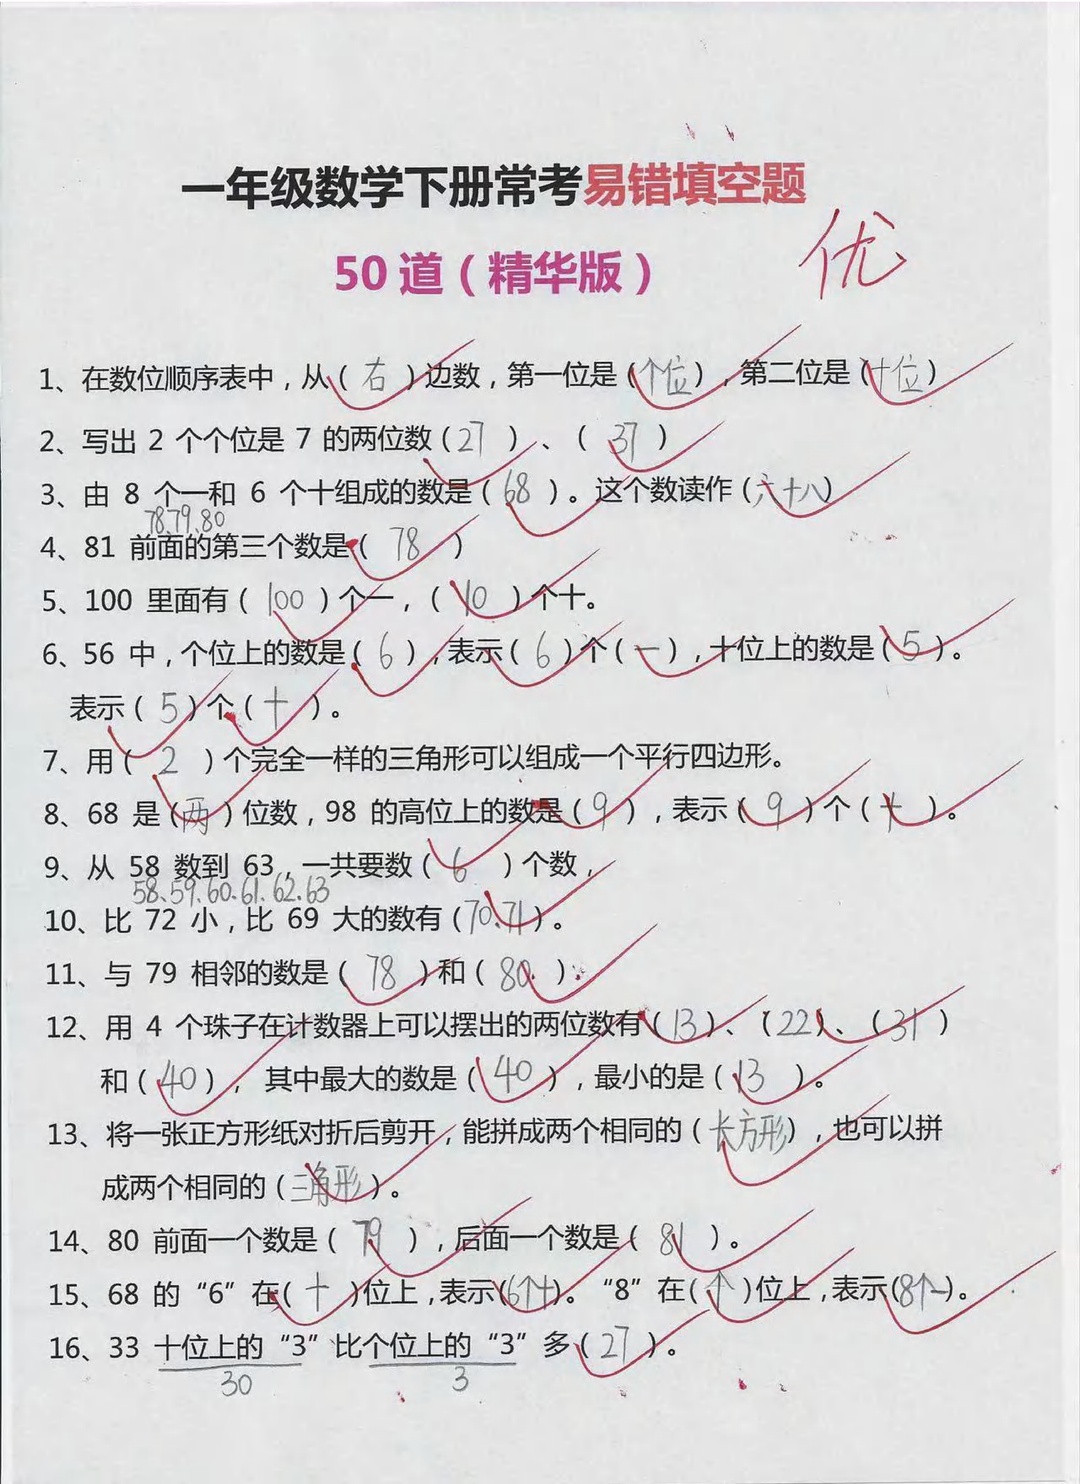 一年级数学下册常考易错填空题
50 道（精华版）
优
1、在数位顺序表中，从（右）边数，第一位是（个位），第二位是（十位）
2、写出 2 个个位是 7 的两位数（27）、（37）
3、由 8 个一和 6 个十组成的数是（68）。这个数读作（六十八）
78、79、80
4、81 前面的第三个数是（78）
5、100 里面有（100）个一，（10）个十。
6、56 中，个位上的数是（6），表示（6）个（一），十位上的数是（5）。
表示（5）个（十）。
7、用（2）个完全一样的三角形可以组成一个平行四边形。
8、68 是（两）位数，98 的高位上的数是（9），表示（9）个（十）。
9、从 58 数到 63，一共要数（6）个数，
58、59、60、61、62、63
10、比 72 小，比 69 大的数有（70、71）。
11、与 79 相邻的数是（78）和（80）
12、用 4 个珠子在计数器上可以摆出的两位数有（13）、（22）、（31）
和（40），其中最大的数是（40），最小的是（13）。
13、将一张正方形纸对折后剪开，能拼成两个相同的（长方形），也可以拼
成两个相同的（三角形）。
14、80 前面一个数是（79），后面一个数是（81）。
15、68 的“6”在（十）位上，表示（6个十）。“8”在（个）位上，表示（8个一）。
16、33 十位上的“3”比个位上的“3”多（27）。
30 3